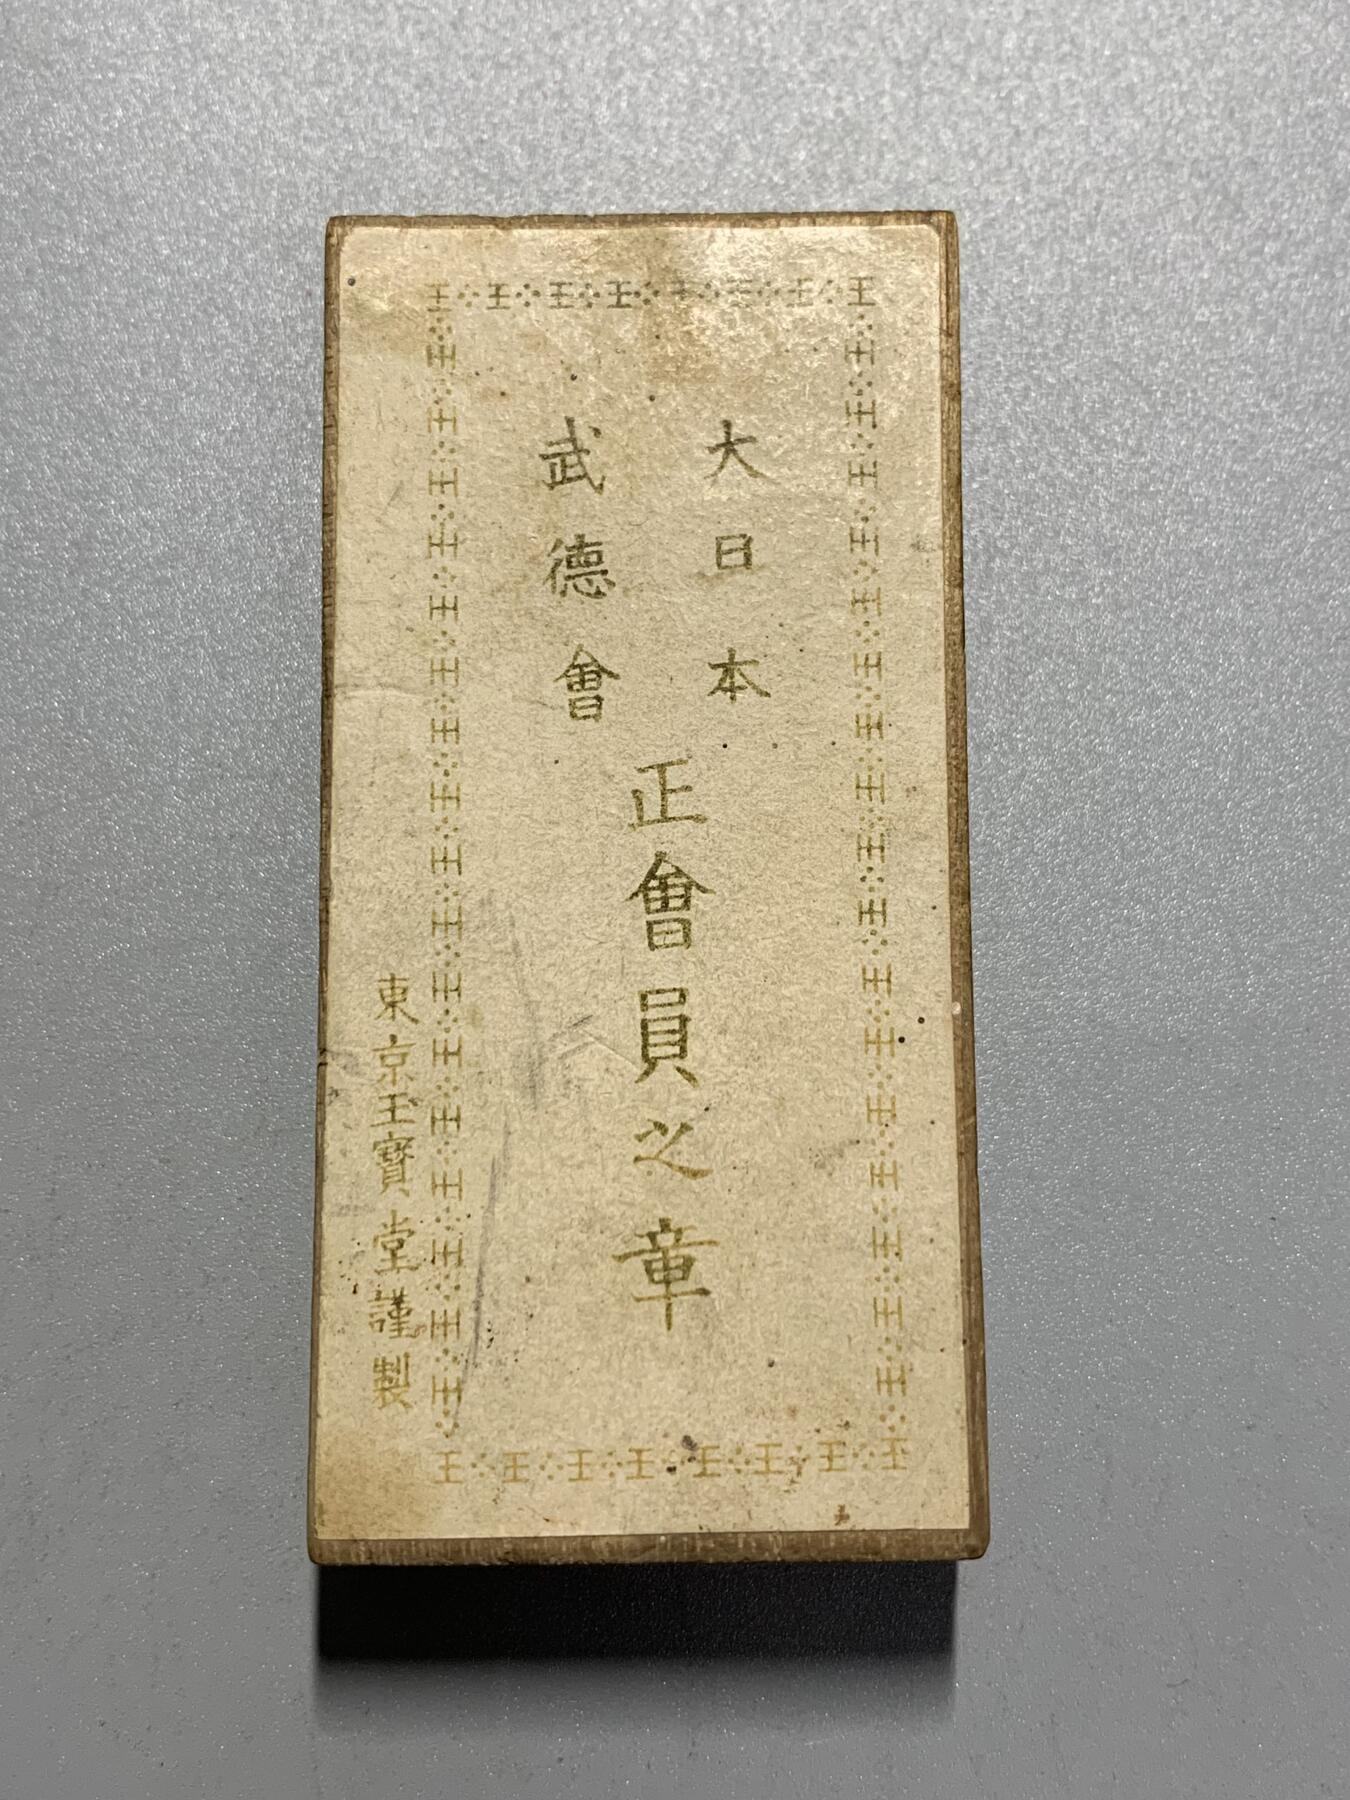 大日本
武德會
正會員之章
東京玉寶堂謹製